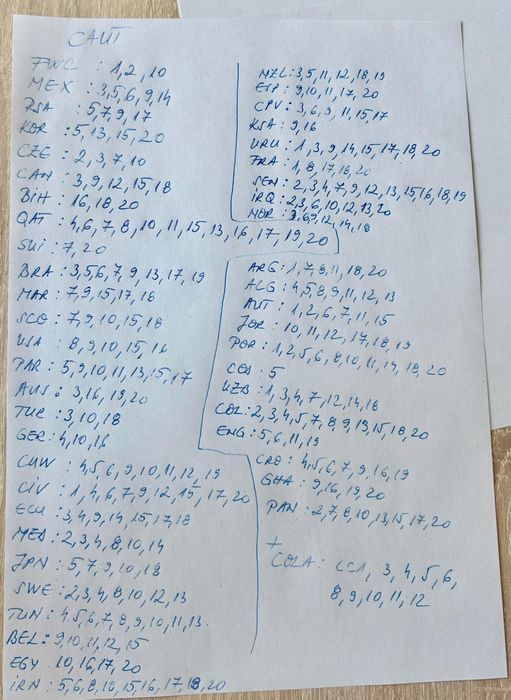 CAUT
FWC : 1,2,10
MEX : 3,5,6,9,14
RSA : 5,7,9,17
KOR : 5,13,15,20
CZE : 2,3,7,10
CAN : 3,9,12,15,18
BIH : 16,18,20
QAT : 4,6,7,8,10,11,15,13,16,17,19,20
SUI : 7,20
BRA : 3,5,6,7,9,13,17,19
MAR : 7,9,15,17,18
SCO : 7,9,10,15,18
USA : 8,9,10,15,16
PAR : 5,9,10,11,13,15,17
AUS : 3,16,19,20
TUR : 3,10,18
GER : 4,10,16
CUW : 4,5,6,9,10,11,12,19
CIV : 1,4,6,7,9,12,15,17,20
ECU : 3,4,9,14,15,17,18
NED : 2,3,4,8,10,14
JPN : 5,7,9,10,18
SWE : 2,3,4,8,10,12,13
TUN : 4,5,6,7,8,9,10,11,13
BEL : 9,10,11,12,15
EGY : 10,16,17,20
IRN : 5,6,8,10,15,16,17,18,20
NZL : 3,5,11,12,18,19
ESP : 9,10,11,17,20
CPV : 3,6,9,11,15,17
KSA : 9,16
URU : 1,3,9,14,15,17,18,20
FRA : 1,8,17,18,20
SEN : 2,3,4,7,9,12,13,15,16,18,19
IRQ : 2,3,6,10,12,13,20
NOR : 3,6,9,12,14,18
ARG : 1,7,8,11,18,20
ALG : 4,5,8,9,11,12,13
AUT : 1,2,6,7,11,15
JOR : 10,11,12,17,18,19
POR : 1,2,5,6,8,10,11,14,18,20
COD : 5
UZB : 1,3,4,7,12,14,18
COL : 2,3,4,5,7,8,9,13,15,18,20
ENG : 5,6,11,19
CRO : 4,5,6,7,9,16,19
GHA : 9,16,19,20
PAN : 2,7,8,10,13,15,17,20
+
COLA : CC1, 3,4,5,6,
8,9,10,11,12